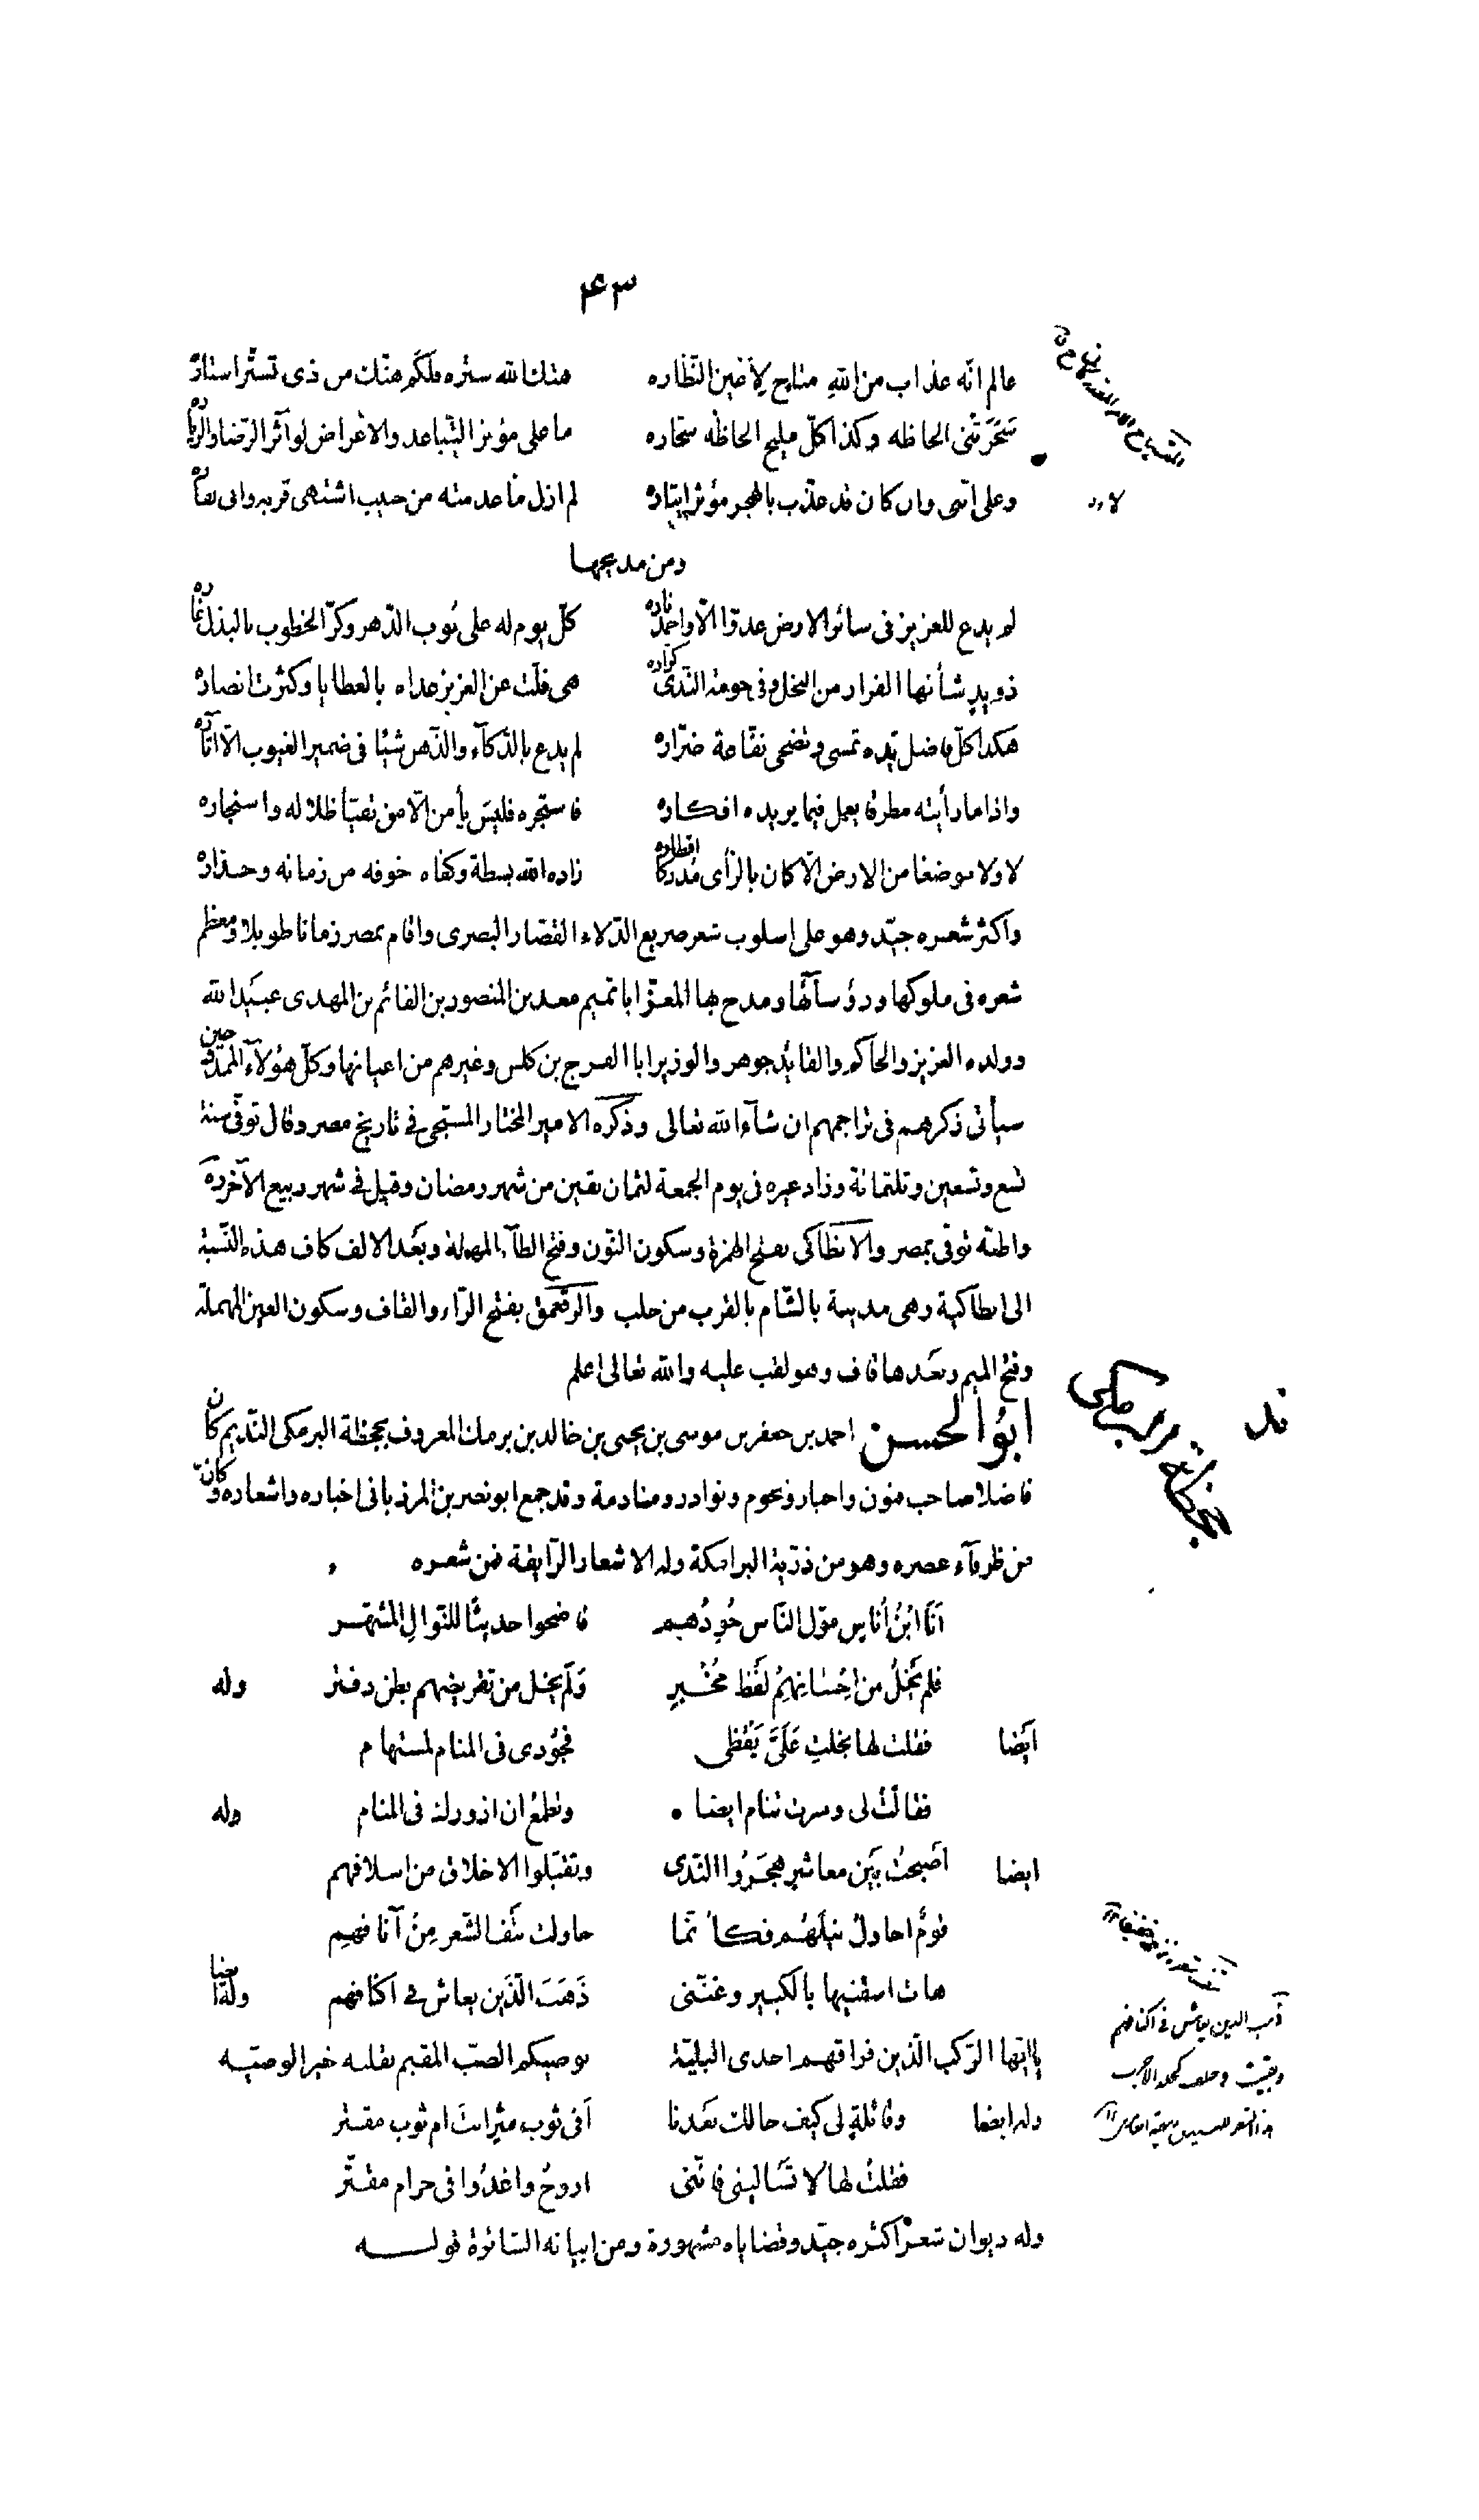 ۴۳
عالم انّه عذاب من اللهِ متاح لِأعين النّظاره هتك الله ستره فلكم هتّك من ذى تستّر استاره
سَحَرَتْنى الحاظه وكذا كلّ مليح الحاظه سحّاره ما على مؤثر التّباعد والاعراض لو آثر الرّضا والزّياره
وعلى انّنى وان كان قد عذّب بالهجر مؤثر ايثاره لم ازل لا عدمته من حبيب اشتهى قربه وابى نفاره
ومن مديحها
لم يدع للعزيز فى سائر الارض عدوّا الّا واخمد ناره كلّ يوم له على نُوب الدّهر وكرّ الخطوب بالبذل غاره
ذو يدٍ شأنها الفرار من البخل وفى حومة النّدى كرّاره هى فلّت عن العزيز عداه بالعطايا وكثرت انصاره
هكذا كلّ فاضل يده تمسى وتضحى نفّاعة ضرّاره لم يدع بالذّكآء والذّهن شيئا فى ضمير الغيوب الّا اثاره
واذا ما رأيته مطرقا يعمل فيما يريده افكاره فاستجره فليس يأمن الّا من تفيّأ ظلاله واستجاره
لا ولا موضعا من الارض الّا كان بالرّأى مُدركا اقطاره زاده الله بسطة وكفاه خوفه من زمانه وحذاره
واكثر شعره جيّد وهو على اسلوب شعر صريع الدّلاء القصّار البصرى واقام بمصر زمانا طويلا ومعظم
شعره فى ملوكها ورؤسآئها ومدح بها المعزّ ابا تميم معد بن المنصور بن القائم بن المهدى عبيد الله
وولده العزيز والحآكم والقائد جوهر والوزير ابا الفرج بن كلس وغيرهم من اعيانها وكلّ هؤلآء الممدوحين
سيأتى ذكرهم فى تراجمهم ان شآء الله تعالى وذكره الامير المختار المسبّحى فى تاريخ مصر وقال توفّى سنة
تسع وتسعين وثلثمائة وزاد غيره فى يوم الجمعة لثمان بقين من شهر رمضان وقيل فى شهر ربيع الآخر ره
واظنّه توفّى بمصر والانطاكى بفتح الهمزة وسكون النّون وفتح الطآء المهملة وبَعْد الالف كاف هذه النّسبة
الى انطاكية وهى مدينة بالشّام بالقرب من حلب والرقعمق بفتح الرّاء والقاف وسكون العين المهملة
وفتح الميم وبَعْدها قاف وهو لقب عليه والله تعالى اعلم
ابُو الحسن احمد بن جعفر بن موسى بن يحيى بن خالد بن برمك المعروف بجحظة البرمكى النّديم كان
جحظة برمكى
فاضلا صاحب فنون واخبار ونجوم ونوادر ومنادمة وقد جمع ابو نصر بن المرزبانى اخباره واشعاره وكان
من ظرفآء عصره وهو من ذرّية البرامكة وله الاشعار الرّايقة فمن شعره
اَنَا ابْنُ اُناسٍ موّل النّاس جُودُهم فاضحوا حديثًا للنّوالِ المشهّر
فلم يَخْلُ من اِحْسانِهِمْ لَفظ مُخْبِرٍ وَلَم يخل من تقريضهم بطن دفتر وله
ايضا فقلت لها بخلتِ عَلَىَّ يَقْظى فجُودى فى المنام لمستهام
فقالَتْ لى وصرت تنام ايضا وتطمعُ ان ازورك فى المنام وله
ايضا اَصبحتُ بَيْن معاشرٍ هجَرُوا النّدى وتقبّلوا الاخلاق من اسلافهم
قومٌ احاولُ نيلَهُم فكأنّما حاولت نتْف الشّعر مِنْ آنافهِم
هات اسقنيها بالكبير وغنّنى ذَهَبَ الّذين يعاش فى اكنافهم وله ايضا
يا ايّها الرّكب الّذين فراقهم احدى البليّة يوصيكم الصبّ المقيم بقلبه خير الوصيّه
وله ايضا وقائلةٍ لى كيف حالك بَعْدنا اَفى ثوب مثرٍ انتَ ام ثوب مقتر
فقلتُ لها لا تسْاَلينى فانّنى اروحُ واغدُوا فى حرام مقتّر
وله ديوان شعر اكثره جيّد وقضاياه مشهورة ومن ابياته السّائرة قوله
ذهب الدين يعاش فى اكنافهم
وبقيت فى خلف كجلد الاجرب